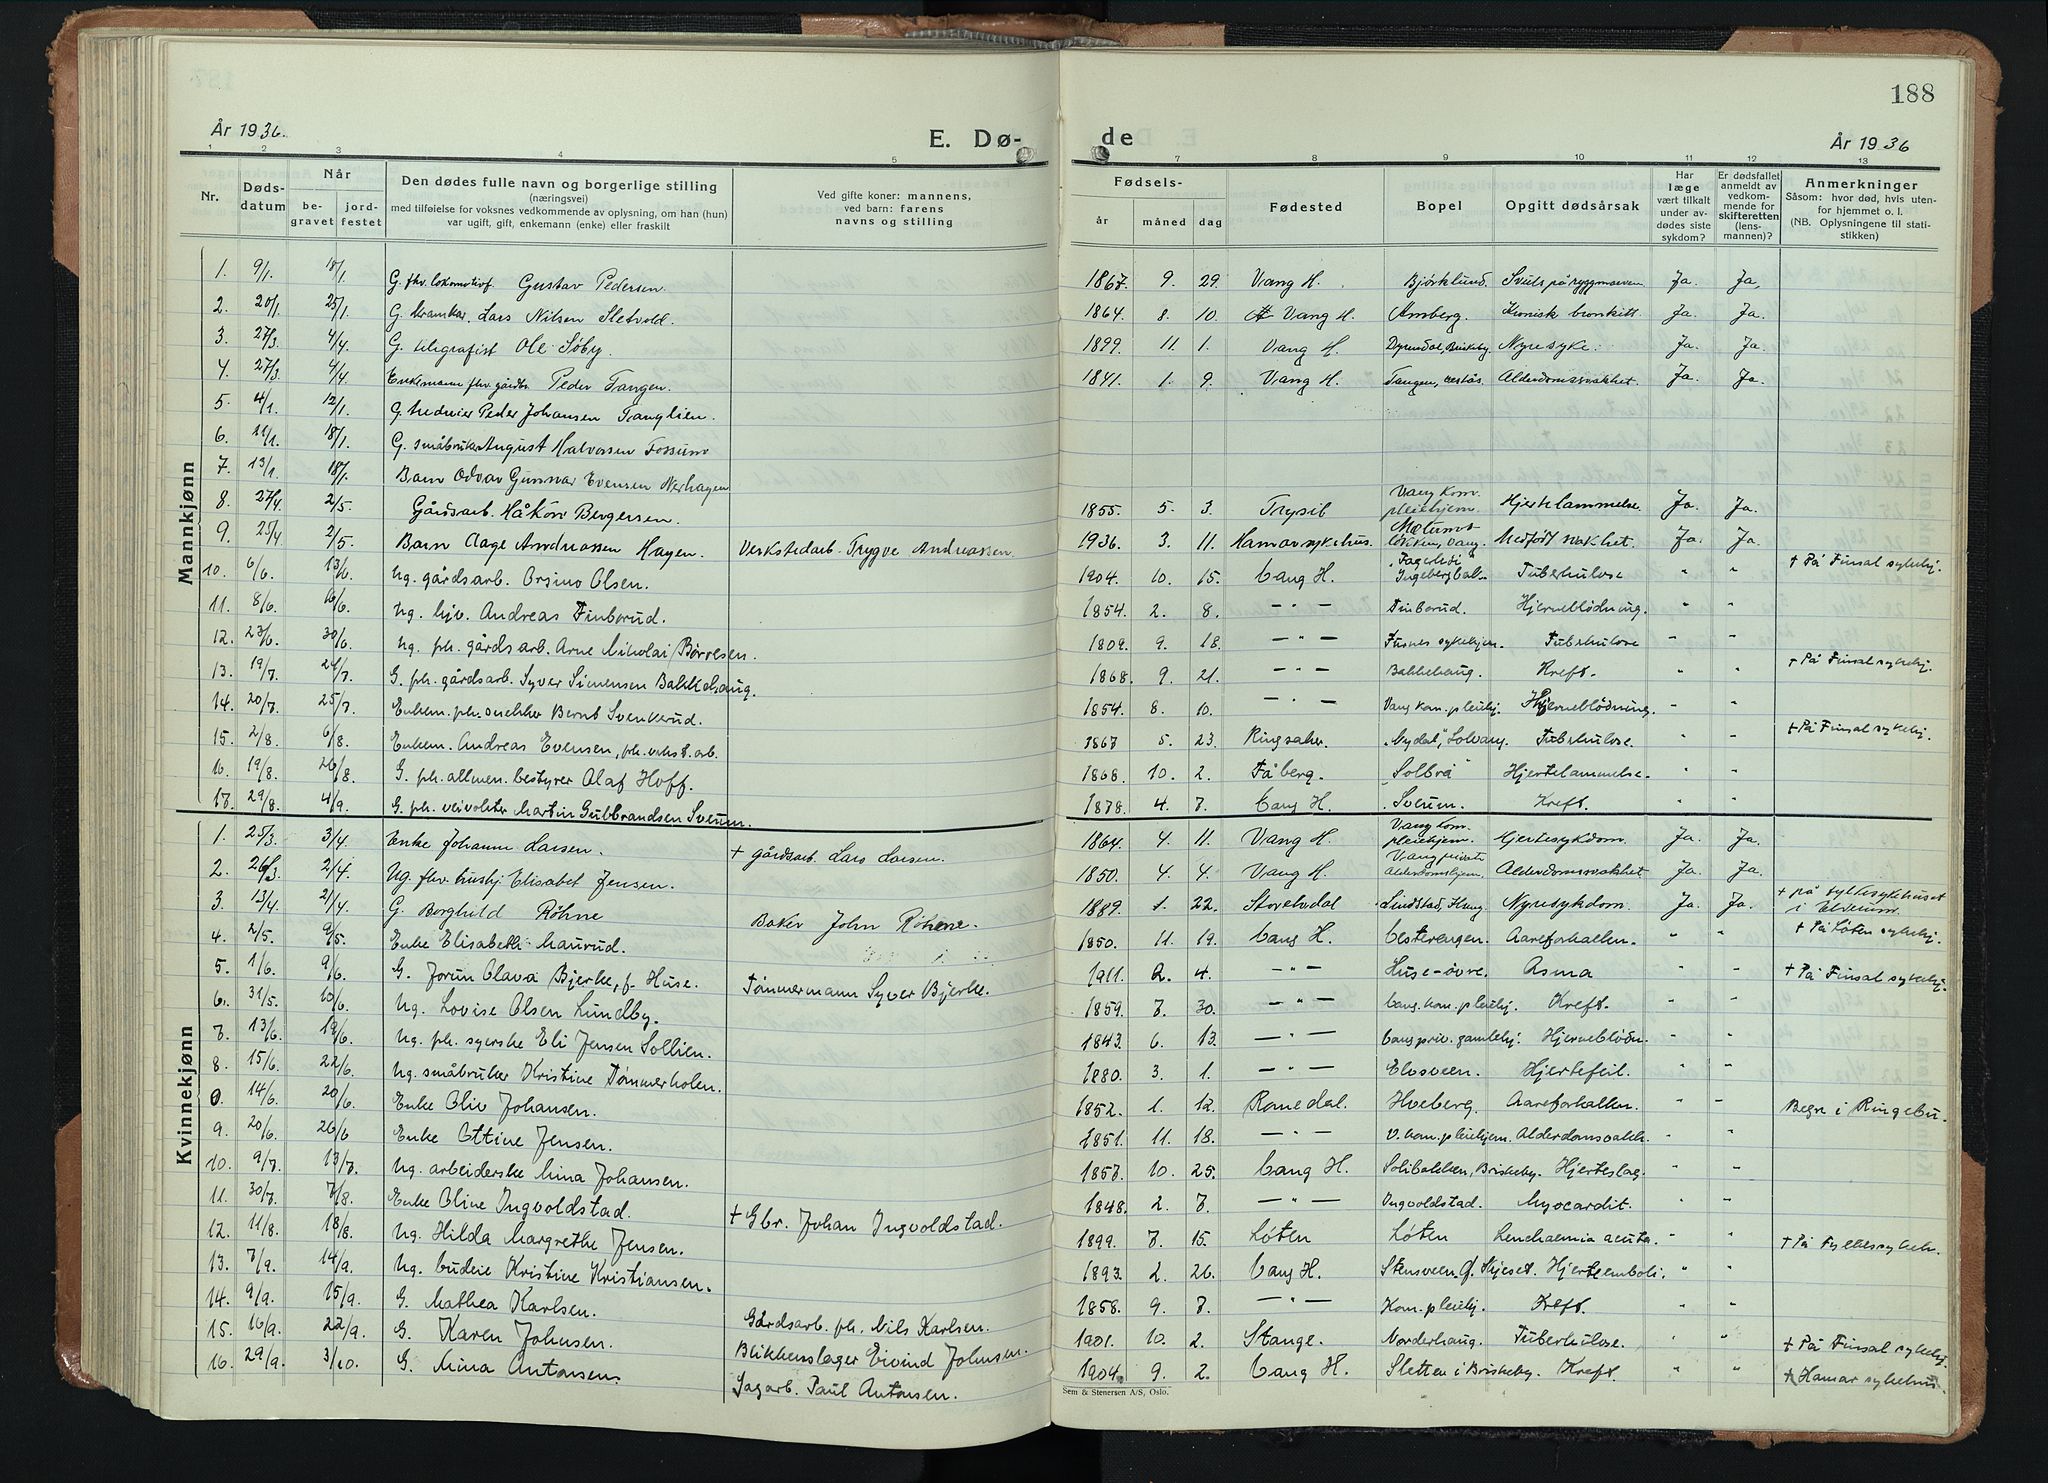 188
År 1936.
E. Dø-
de
År 1936
1 2 3 4 5
7 8 9 10 11 12 13
Nr.
Døds-
datum
Når
be-
gravet
jord-
festet
Den dødes fulle navn og borgerlige stilling
(næringsvei)
med tilføielse for voksnes vedkommende av oplysning, om han (hun)
var ugift, gift, enkemann (enke) eller fraskilt
Ved gifte koner: mannens,
ved barn: farens
navns og stilling
Fødsels-
år
måned
dag
Fødested
Bopel
Opgitt dødsårsak
Har
læge
vært tilkalt
under av-
dødes siste
sykdom?
Er dødsfallet
anmeldt av
vedkom-
mende for
skifteretten
(lens-
mannen)?
Anmerkninger
Såsom: hvor død, hvis uten-
for hjemmet o. l.
(NB. Oplysningene til stati-
stikken)
Mannkjønn
1. 9/1. 18/1. G. fhv. lokomotivf. Gustav Pedersen. 1867. 9. 29. Vang H. Bjørklund. Svuls på ryggmarven Ja. Ja.
2. 20/1. 25/1. G. Lars Nilsen Sletvold. 1864. 8. 10. Vang H. Arnberg. Kronisk bronkitt. Ja. Ja.
3. 27/3. 4/4. G. telegrafist Ole Søby. 1899. 11. 1. Vang H. Dyrendal, Briskeby. Nyresyke. Ja. Ja.
4. 27/3. 4/4. Enkemann fhv. gårdbr. Peder Tangen. 1841. 1. 9. Vang H. Tangen, Alderdomssvakhet. Ja. Ja.
5. 4/1. 12/1. G. Peder Johansen Tanglien.
6. 11/1. 18/1. G. småbruker August Halvorsen Fossum
7. 13/1. 18/1. Barn Odvar Gunnar Evensen Nerhagen
8. 27/4. 2/5. Gårdsarb. Håkon Bergersen. 1855. 5. 3. Trysil Vang kom. pleiehjem. Hjertelammelse. Ja. Ja.
9. 25/4. 2/5. Barn Aage Andreassen Hagen. Verkstedarb. Trygve Andreassen. 1936. 3. 11. Hamar sykehus. Vang. Medfødt svakhet. Ja. Ja.
10. 6/6. 13/6. Ug. gårdsarb. Orsino Olsen. 1904. 10. 15. Vang H. Fagerhøi Ingebergbak. Tuberkulose " " + På Finsal sykehj.
11. 8/6. 16/6. Ug. kjv. Andreas Finborud. 1854. 2. 8. — " — Finborud. Hjerneblødning. " "
12. 23/6. 30/6. Ug. ph. gårdsarb. Arne Nikolai Børresen. 1809. 9. 18. — " — Furnes sykehjem. Tuberkulose " "
13. 19/7. 24/7. G. ph. gårdsarb. Syver Simensen Bakkehaug. 1868. 9. 21. — " — Bakkehaug. Kreft. " " + På Finsal sykehj.
14. 20/7. 25/7. Enkem. ph. snekker Bernt Svenkerud. 1854. 8. 10. — " — Vang kom. pleiehj. Hjerneblødning. " "
15. 2/8. 6/8. Enkem. Andreas Evensen, ph. verkst. arb. 1867 5. 23. Ringsaker. "Nydal", Solvang. Tuberkulose. " " + På Finsal sykehj.
16. 19/8. 26/8. G. ph. allmen. bestyrer Olaf Hoff. 1868. 10. 2. Fåberg. "Solbrå" Hjertelammelse. " "
17. 29/8. 4/9. G. ph. veivokter Martin Gulbrandsen Sveum. 1878. 4. 7. Vang H. Sveum. Kreft. " "
Kvinnekjønn
1. 25/3. 3/4. Enke Johanne Larsen. + gårdsarb. Lars Larsen. 1864. 4. 11. Vang H. Vang kom. pleiehjem. Hjertesykdom. Ja. Ja.
2. 26/3. 2/4. Ug. fhv. hushj. Elisabet Jensen. 1850. 4. 4. Vang H. Vang private Alderdomshjem. Alderdomssvakhet Ja. Ja.
3. 13/4. 21/4. G. Borghild Röhne Baker John Röhne. 1889. 1. 22. Storelvdal Lindstad, Nyresykdom. Ja. Ja. + på fylkesykehuset i Elverum.
4. 2/5. 9/5. Enke Elisabeth Maurud. 1850. 11. 19. Vang H. Vesterengen. Aareforkalkn. " " + På Løten sykehj.
5. 1/6. 9/6. G. Jorun Olava Bjerke, f. Huse. Tømmermann Syver Bjerke. 1911. 2. 4. — " — Huse-øvre. Asma " " + På Finsal sykehj.
6. 31/5. 10/6. Ug. Lovise Olsen Lundby. 1859. 7. 30. — " — Vang kom. pleiehj. Kreft. " "
7. 13/6. 19/6. Ug. ph. syerske Eli Jensen Sollien. 1843. 6. 13. — " — Vang priv. gamlehj. Hjerneblødn. " "
8. 15/6. 22/6. Ug. småbruker Kristine Tømmerholen. 1880. 3. 1. — " — Elosveen. Hjertefeil. " "
0. 14/6. 20/6. Enke Oliv Johansen. 1852. 1. 12. Romedal. Hoeberg. Aareforkalkn. " " Begr. i Ringebu.
9. 20/6. 26/6 Enke Ottine Jensen. 1851. 11. 18. — " — V. kom. pleiehjem. Alderdomsvakh. " "
10. 9/7. 13/7. Ug. arbeiderske Nina Johansen. 1857. 10. 25. Vang H. Solibakken, Briskeby. Hjerteslag. " "
11. 30/7. 7/8. Enke Oline Ingvoldstad. + Gbr. Johan Ingvoldstad. 1848. 2. 7. — " — Ingvoldstad. Myocardit. " "
12. 11/8. 18/8. Ug. Hilda Margrethe Jensen. 1899. 7. 15. Løten Løten Leuchaemia acuta. " " + På Fylkessykeh.
13. 7/9. 14/9. Ug. budeie Kristine Kristiansen. 1893. 2. 26. Vang H. Stensveen Skjeset. Hjerteemboli. " "
14. 9/9. 15/9. G. Mathea Karlsen. Gårdsarb. ph. Nils Karlsen. 1858. 9. 7. — " — Kom. pleiehj. Kreft. " "
15. 16/9. 22/9. G. Karen Johnsen. Blikkenslager Eivind Johnsen. 1901. 10. 2. Stange. Norderhaug. Tuberkulose. " " + På Finsal sykehj.
16. 29/9. 3/10. G. Nina Antonsen. Sagarb. Paul Antonsen. 1904. 9. 2. Vang H. Sletten i Briskeby. Kreft. " " + Hamar sykehus.
Sem & Stenersen A/S, Oslo.